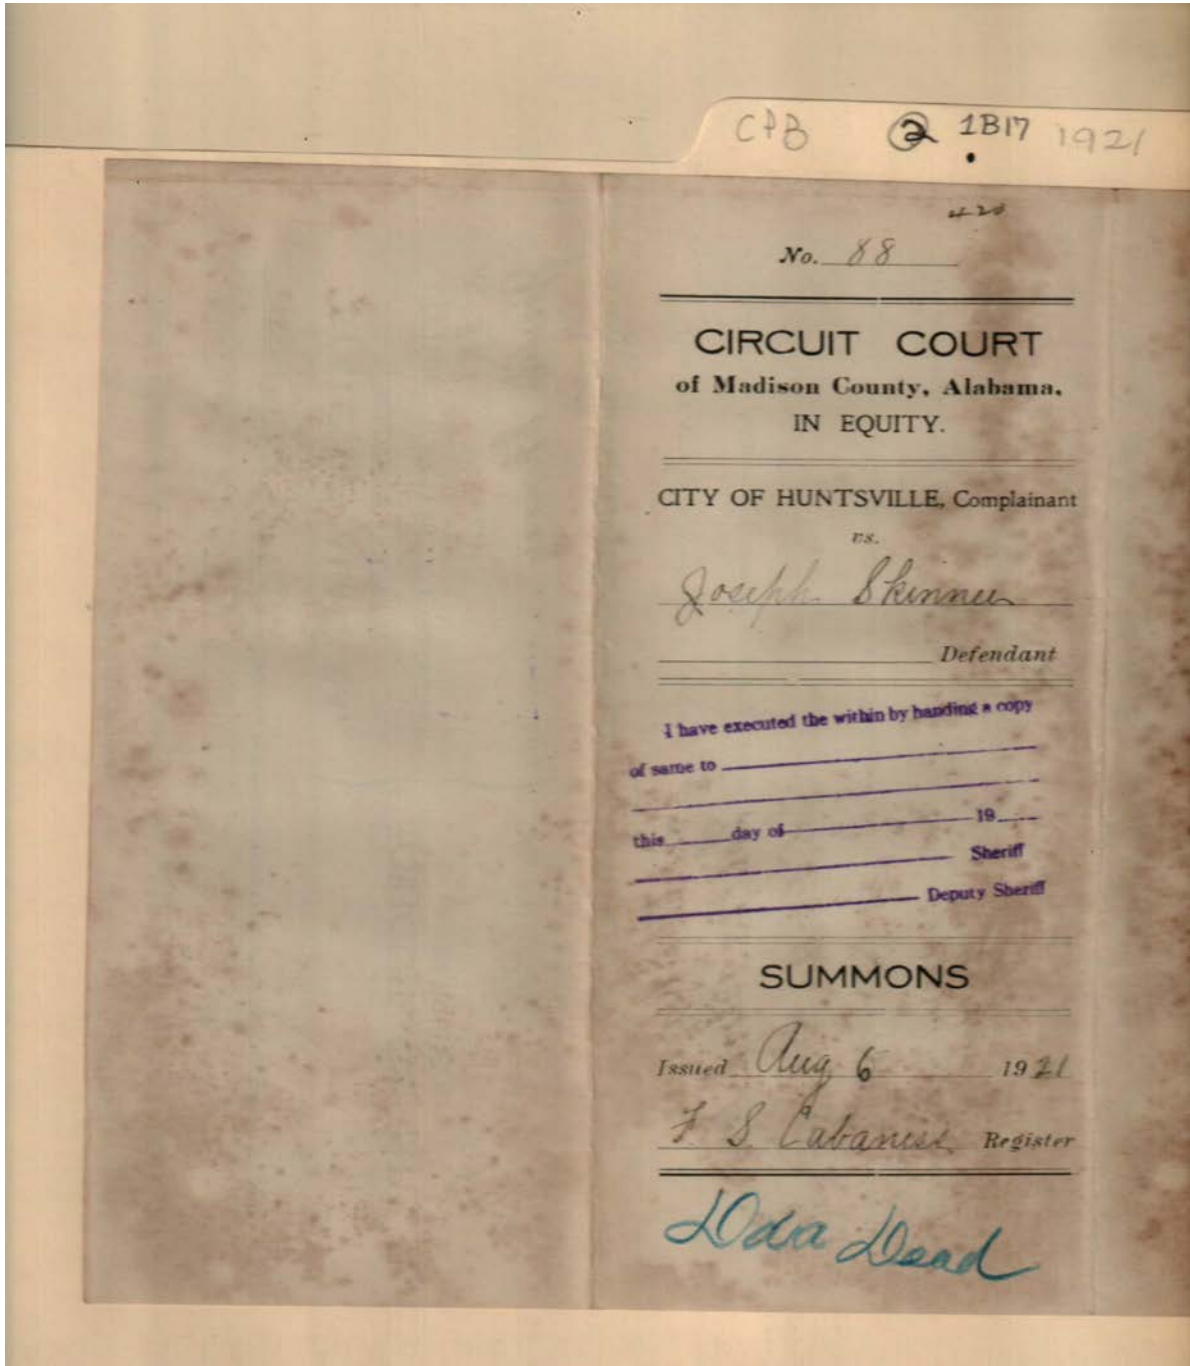 CPB 2 1B17 1921
420
No. 88
CIRCUIT COURT
of Madison County, Alabama,
IN EQUITY.
CITY OF HUNTSVILLE, Complainant
vs.
Joseph Skinner
Defendant
I have executed the within by handing a copy
of same to
this day of 19
Sheriff
Deputy Sheriff
SUMMONS
Issued Aug 6 1921
F S Cabaniss Register
Dead